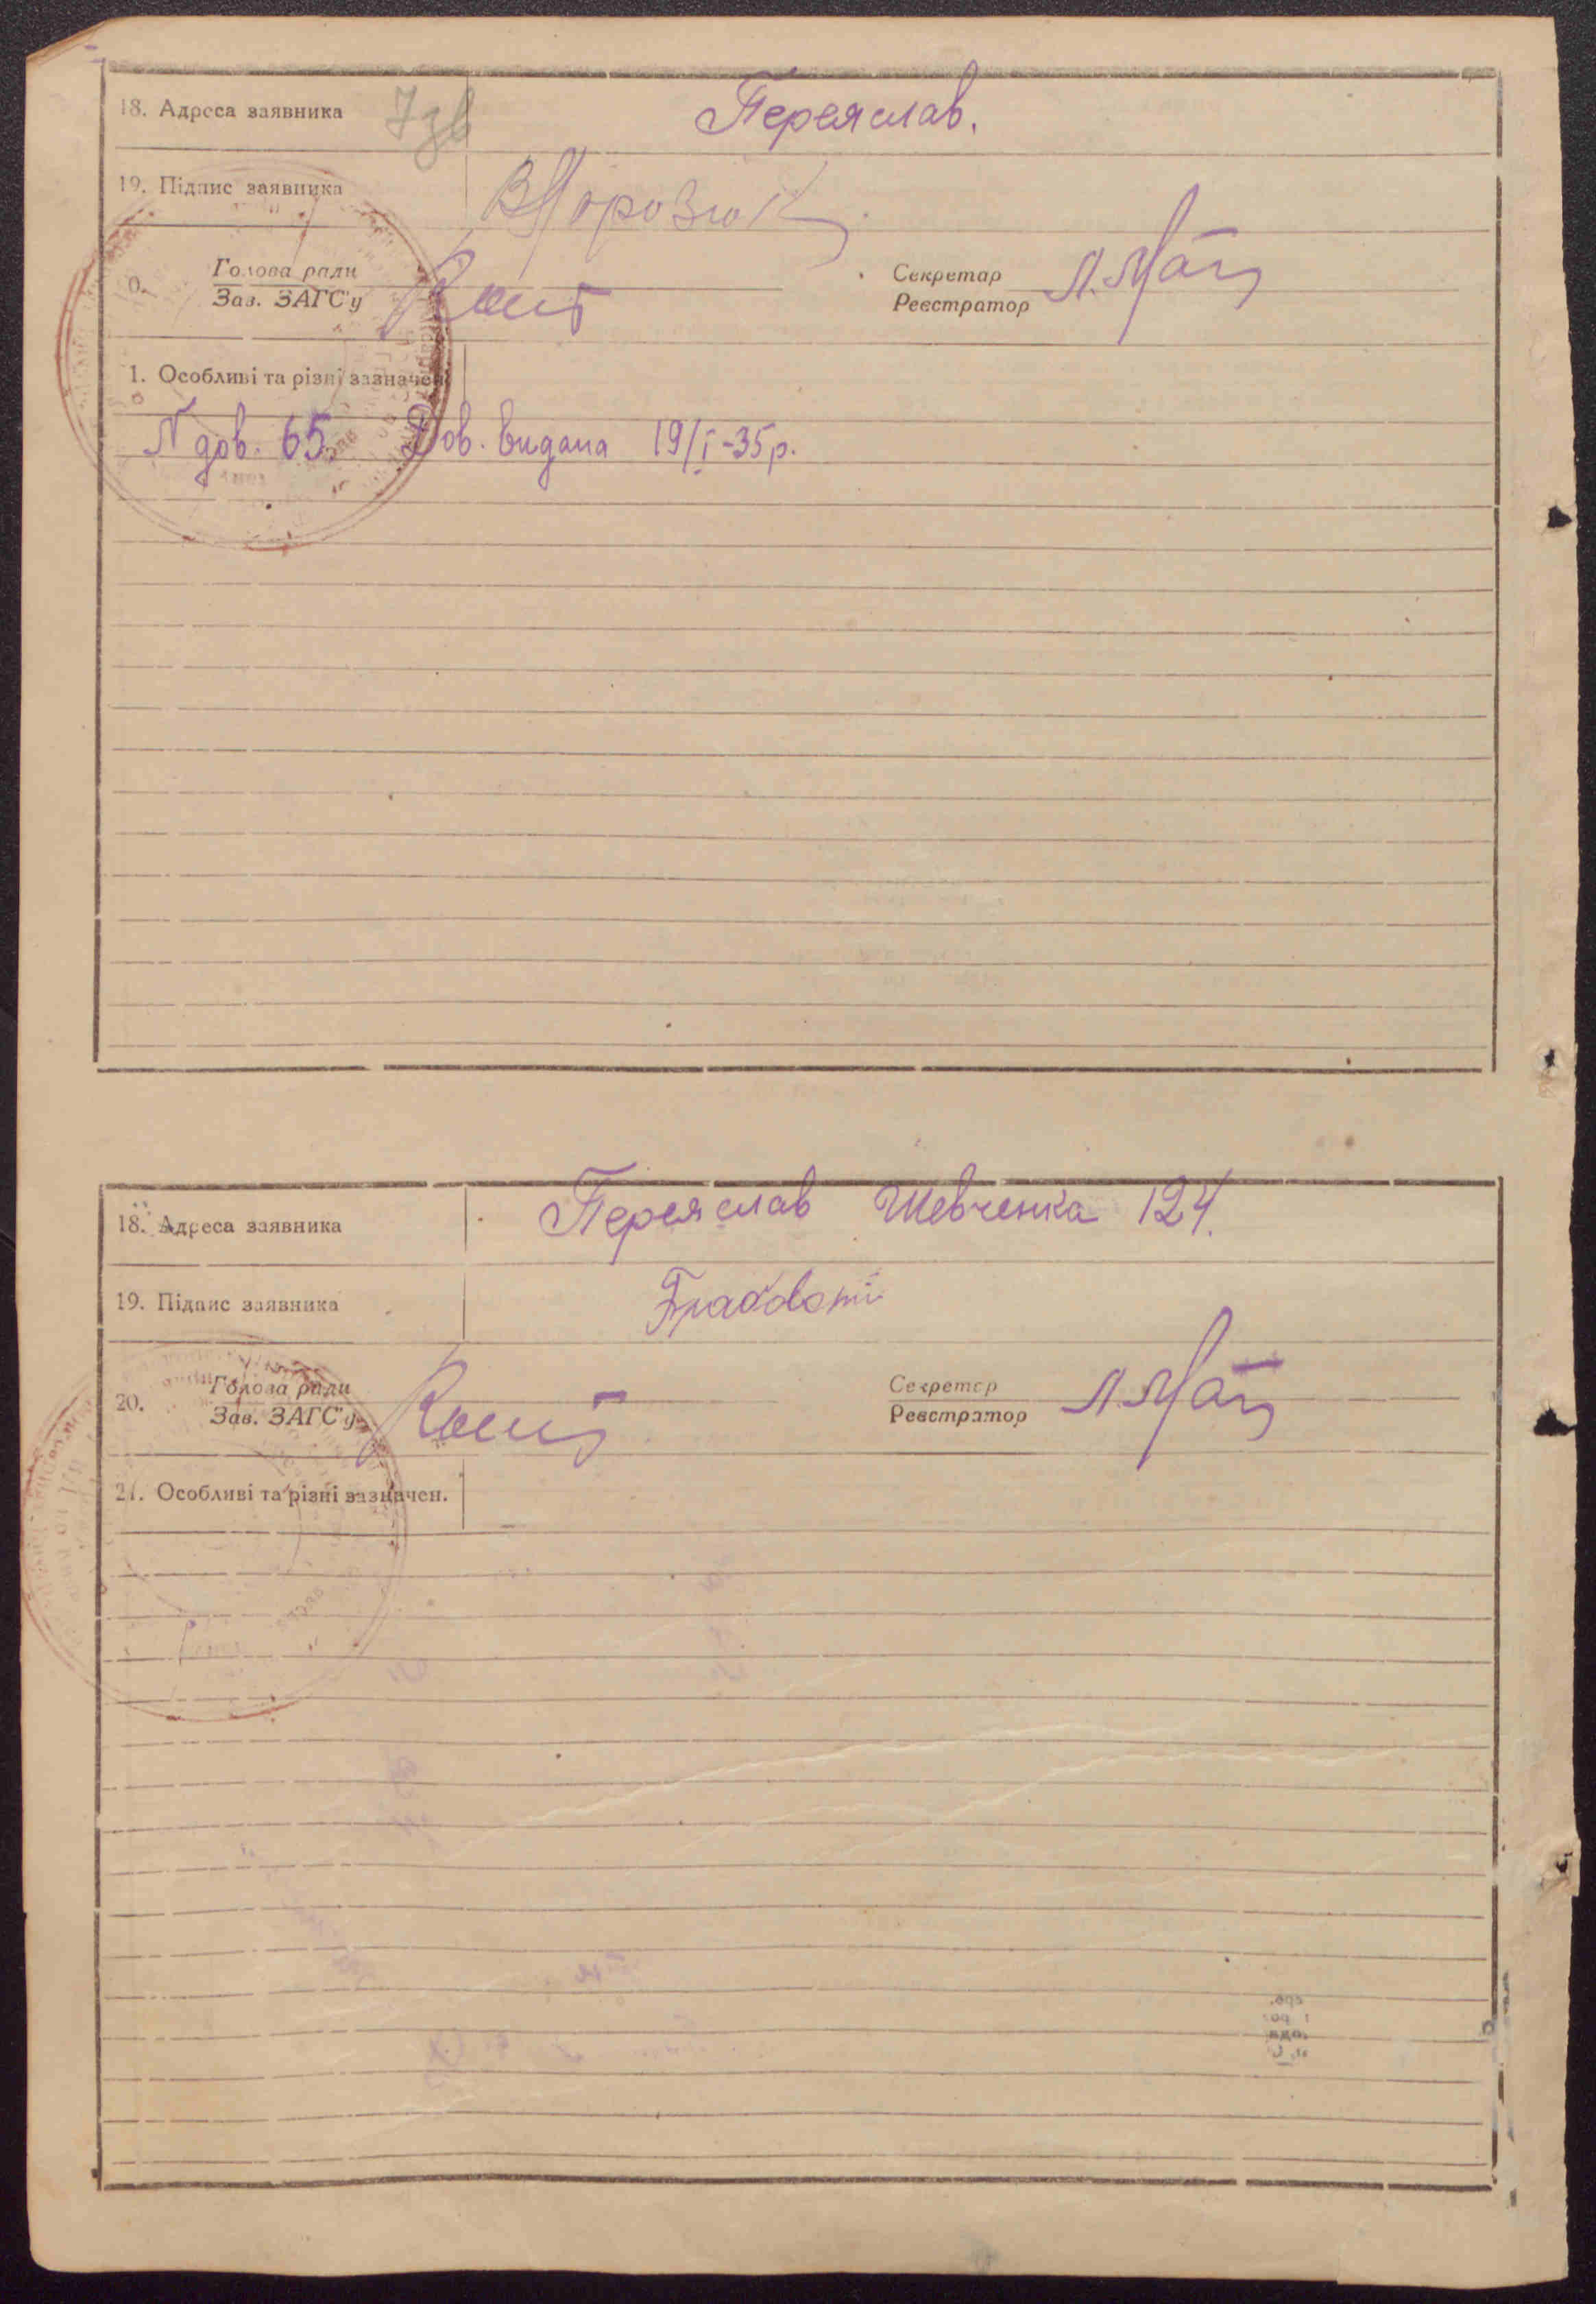 18. Адреса заявника 7зв Переяслав.
19. Підпис заявника ВМорозюк
0. Голова ради Секретар
Зав. ЗАГС'у Реєстратор
1. Особливі та різні зазначен.
N дов. 65. Дов. видана 19/I-35р.
18. Адреса заявника Переяслав Шевченка 124.
19. Підпис заявника
20. Голова ради Секретар
Зав. ЗАГС'у Реєстратор
21. Особливі та різні зазначен.